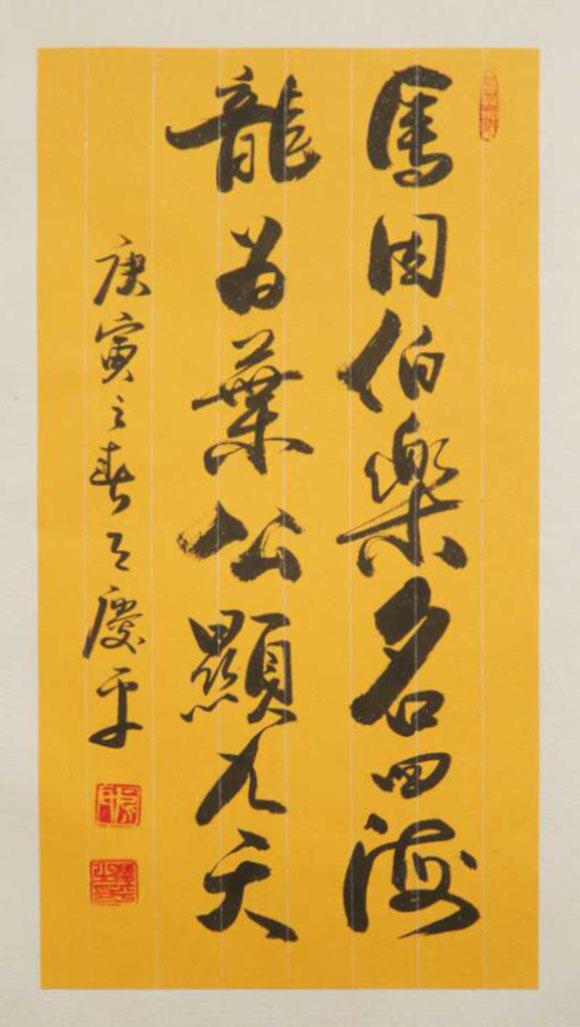 馬因伯樂名四海
龍為葉公顯九天
庚寅之春王慶平